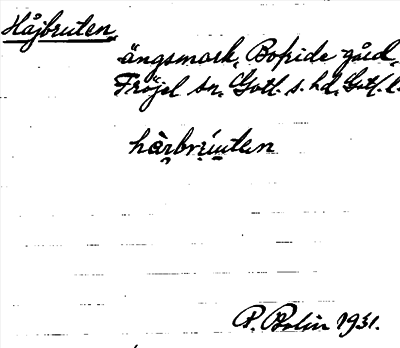 Håjbruten,
ängsmark, Bofride gård,
Fröjel sn. Gotl. s. hd. Gotl. l.
P. Bolin 1931.